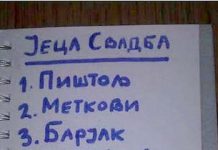 ЈЕЦА СВАДБА
1. ПИШТОЉ
2. МЕТКОВИ
3. БАРЈАК